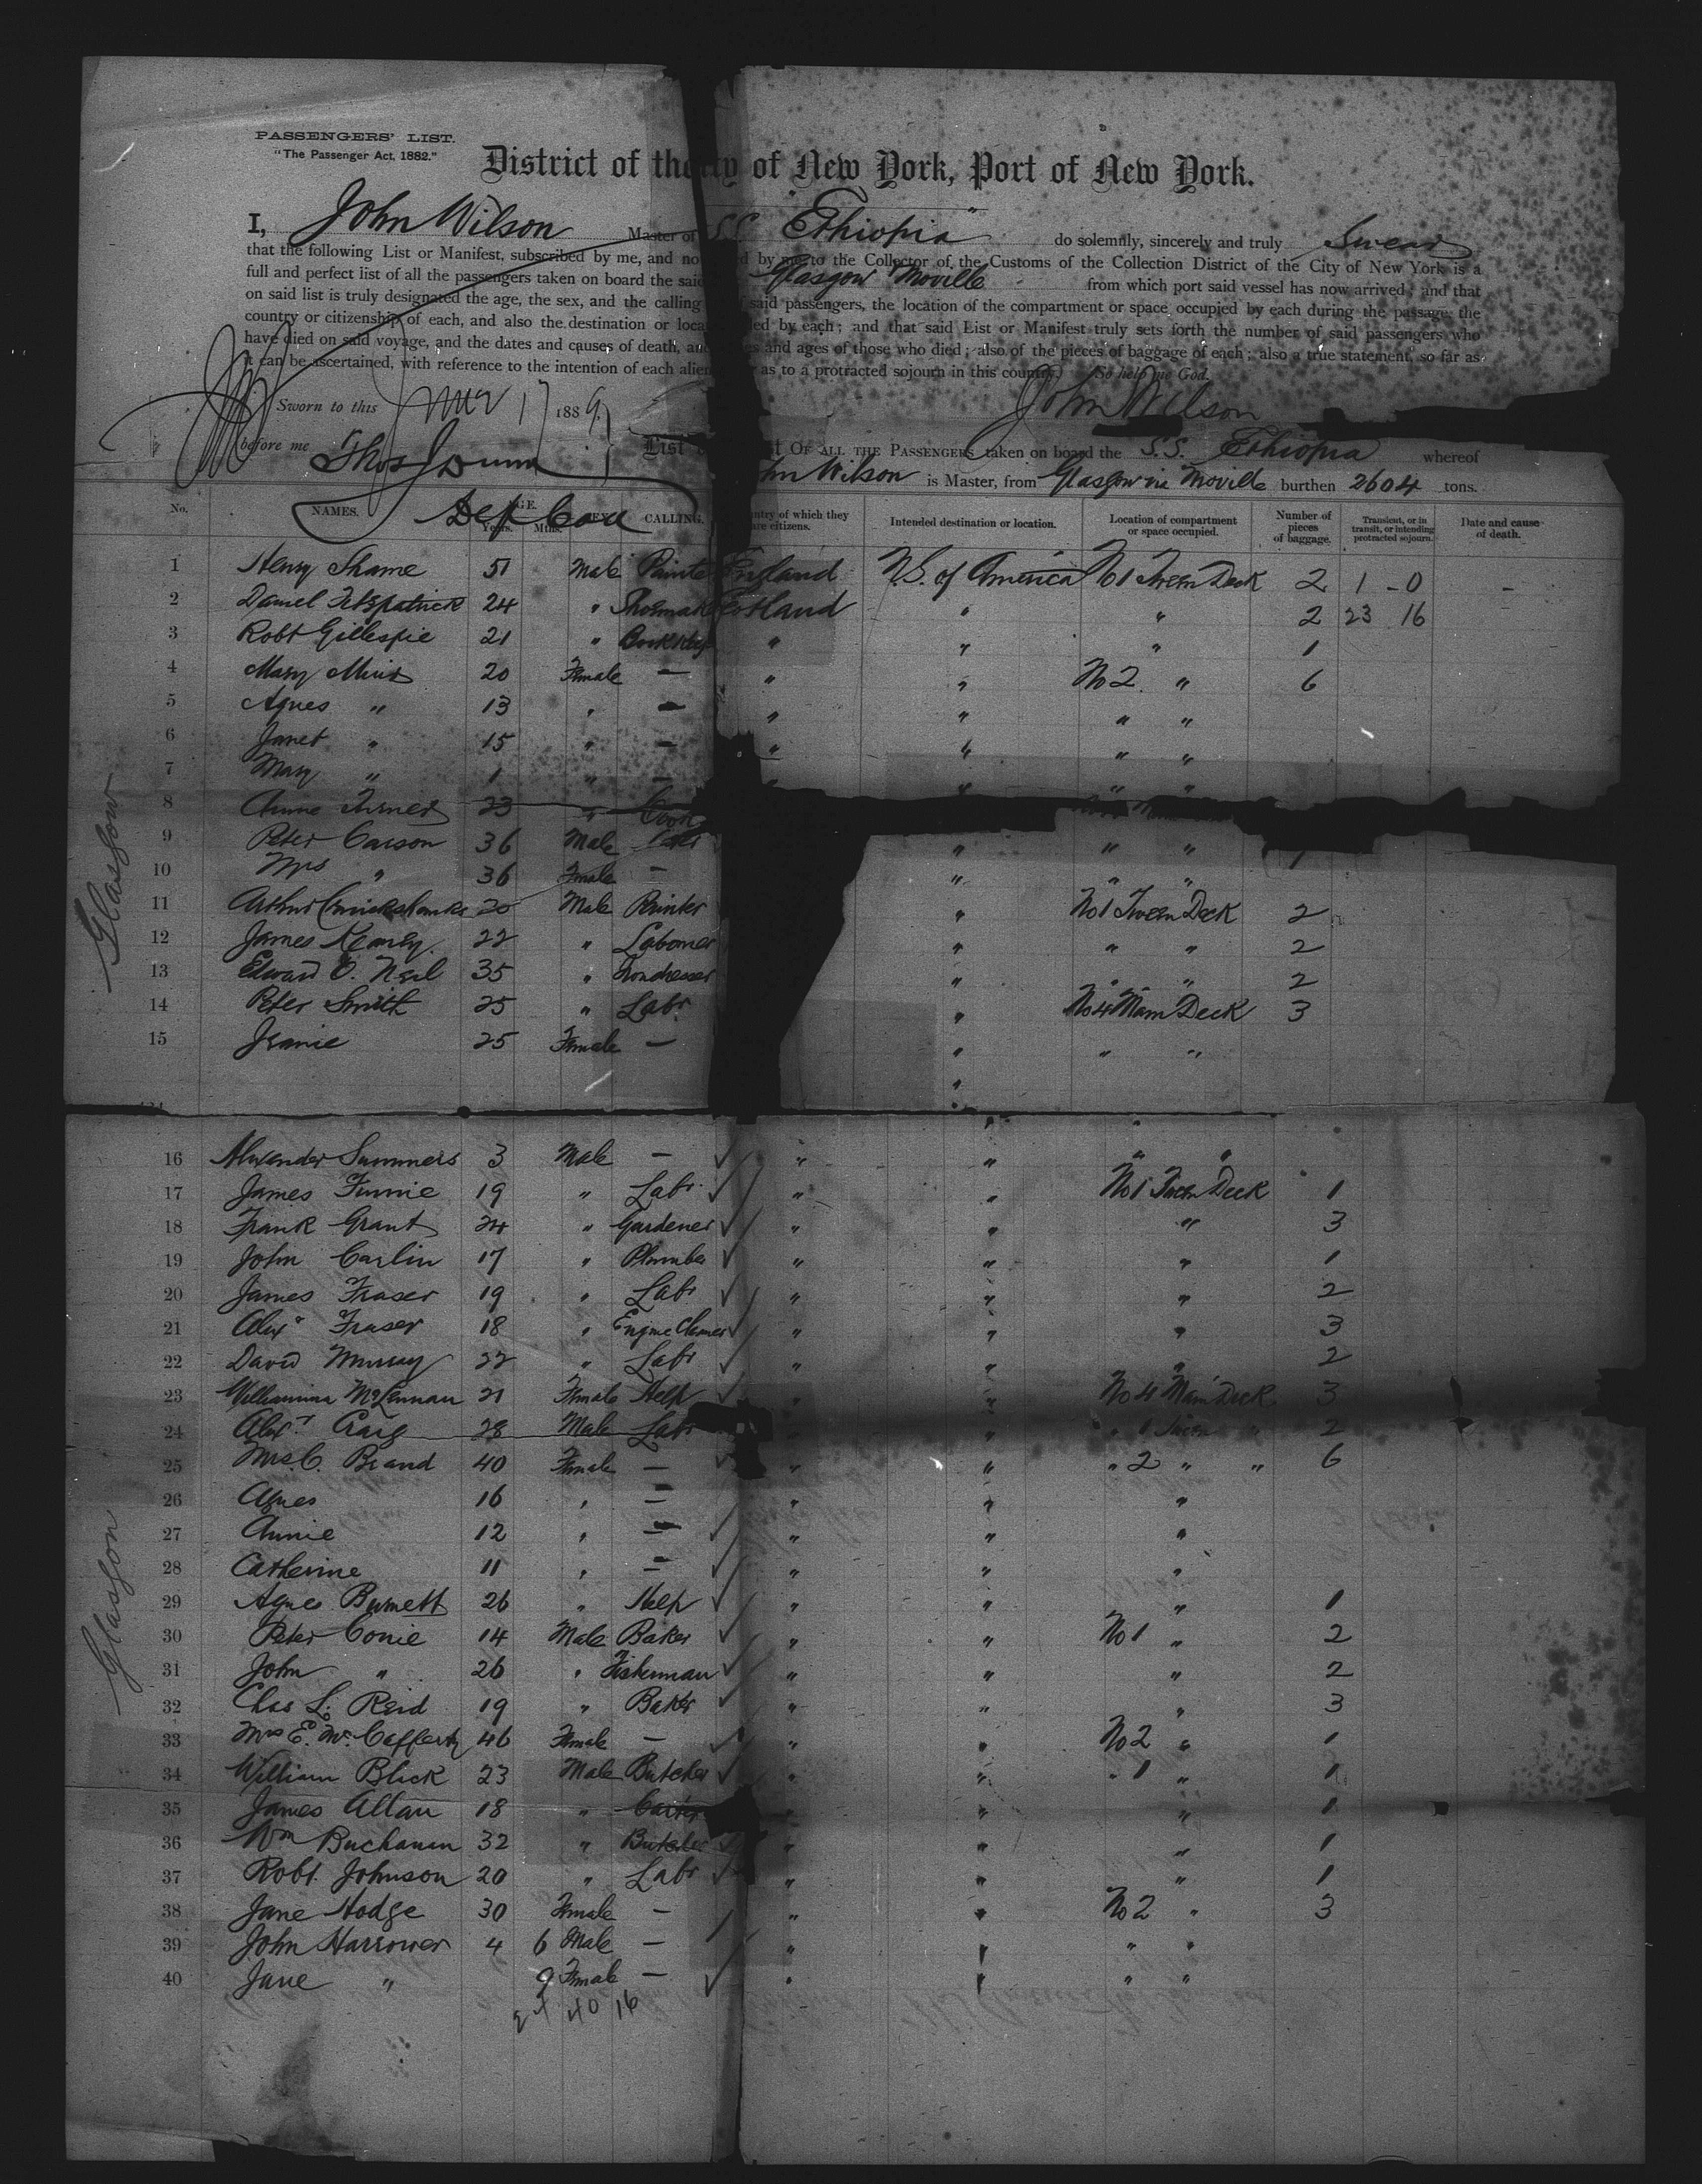 PASSENGERS' LIST.
"The Passenger Act, 1882."
District of the City of New York, Port of New York.
I, John Wilson Master of S.S. "Ethiopia" do solemnly, sincerely and truly Swear
that the following List or Manifest, subscribed by me, and now by me to the Collector of the Customs of the Collection District of the City of New York is a
full and perfect list of all the passengers taken on board the said Glasgow Moville from which port said vessel has now arrived; and that
on said list is truly designated the age, the sex, and the calling of said passengers, the location of the compartment or space occupied by each during the passage, the
country or citizenship of each, and also the destination or location by each; and that said List or Manifest truly sets forth the number of said passengers who
have died on said voyage, and the dates and causes of death, and and ages of those who died; also of the pieces of baggage of each; also a true statement, so far as
it can be ascertained, with reference to the intention of each alien as to a protracted sojourn in this country. So help me God.
Sworn to this 17 1889 John Wilson
before me Thos
List Of all the Passengers taken on board the S.S. Ethiopia whereof
John Wilson is Master, from Glasgow via Moville burthen 2604 tons.
Dep Coll
No. NAMES. AGE. Years. Mths. SEX. CALLING. Country of which they are citizens. Intended destination or location. Location of compartment or space occupied. Number of pieces of baggage. Transient, or in transit, or intending protracted sojourn. Date and cause of death.
1 Henry Shame 51 Male Painter England U.S. of America No 1 Tween Deck 2 1 - 0 -
2 Daniel Fitzpatrick 24 " Shoemaker Scotland " " 2 23 16
3 Robt Gillespie 21 " Bookkeep " " " 1
4 Mary 20 Female — " " No 2 " 6
5 Agnes " 13 " — " " " "
6 Janet " 15 " — " " " "
7 Mary " 1 " — " " " "
8 Annie Turner 23 " Cook
9 Peter Carson 36 Male Labr " " " 1
10 Mrs " 36 Female — " " "
11 Arthur Cruickshanks 20 Male Printer " No 1 Tween Deck 2
12 James Kearney 22 " Labourer " " " 2
13 Edward O. Neil 35 " Irondresser " " " 2
14 Peter Smith 25 " Labr " No 4 Main Deck 3
15 Jeanie 25 Female — " " "
Glasgow
16 Alexander Summers 3 Male — " " " "
17 James Finnie 19 " Labr " " No 1 Tween Deck 1
18 Frank Grant 24 " Gardener " " " 3
19 John Carlin 17 " Plumber " " " 1
20 James Fraser 19 " Labr " " " 2
21 Alexr Fraser 18 " Engine Cleaner " " " 3
22 David Murray 22 " Labr " " " 2
23 Williamina McLennan 21 Female Help " " No 4 Main Deck 3
24 Alexr Craig 28 Male Labr " " " 1 Tween " 2
25 Mrs C. Brand 40 Female — " " " 2 " " 6
26 Agnes 16 " — " " "
27 Annie 12 " — " " "
28 Catherine 11 " — " " "
29 Agnes Burnett 26 " Help " " " 1
30 Peter Conie 14 Male Baker " " No 1 " 2
31 John " 26 " Fisherman " " " 2
32 Chas L. Reid 19 " Baker " " " 3
33 Mrs E. McCafferty 46 Female — " " No 2 " 1
34 William Black 23 Male Butcher " " " 1 " 1
35 James Allan 18 " Carter " " " 1
36 Wm Buchanan 32 " Butcher " " " 1
37 Robt Johnson 20 " Labr " " " 1
38 Jane Hodge 30 Female — " " No 2 " 3
39 John Harrower 4 6 Male — " " " "
40 Jane " 9 Female — " " " "
24 40 16
Glasgow